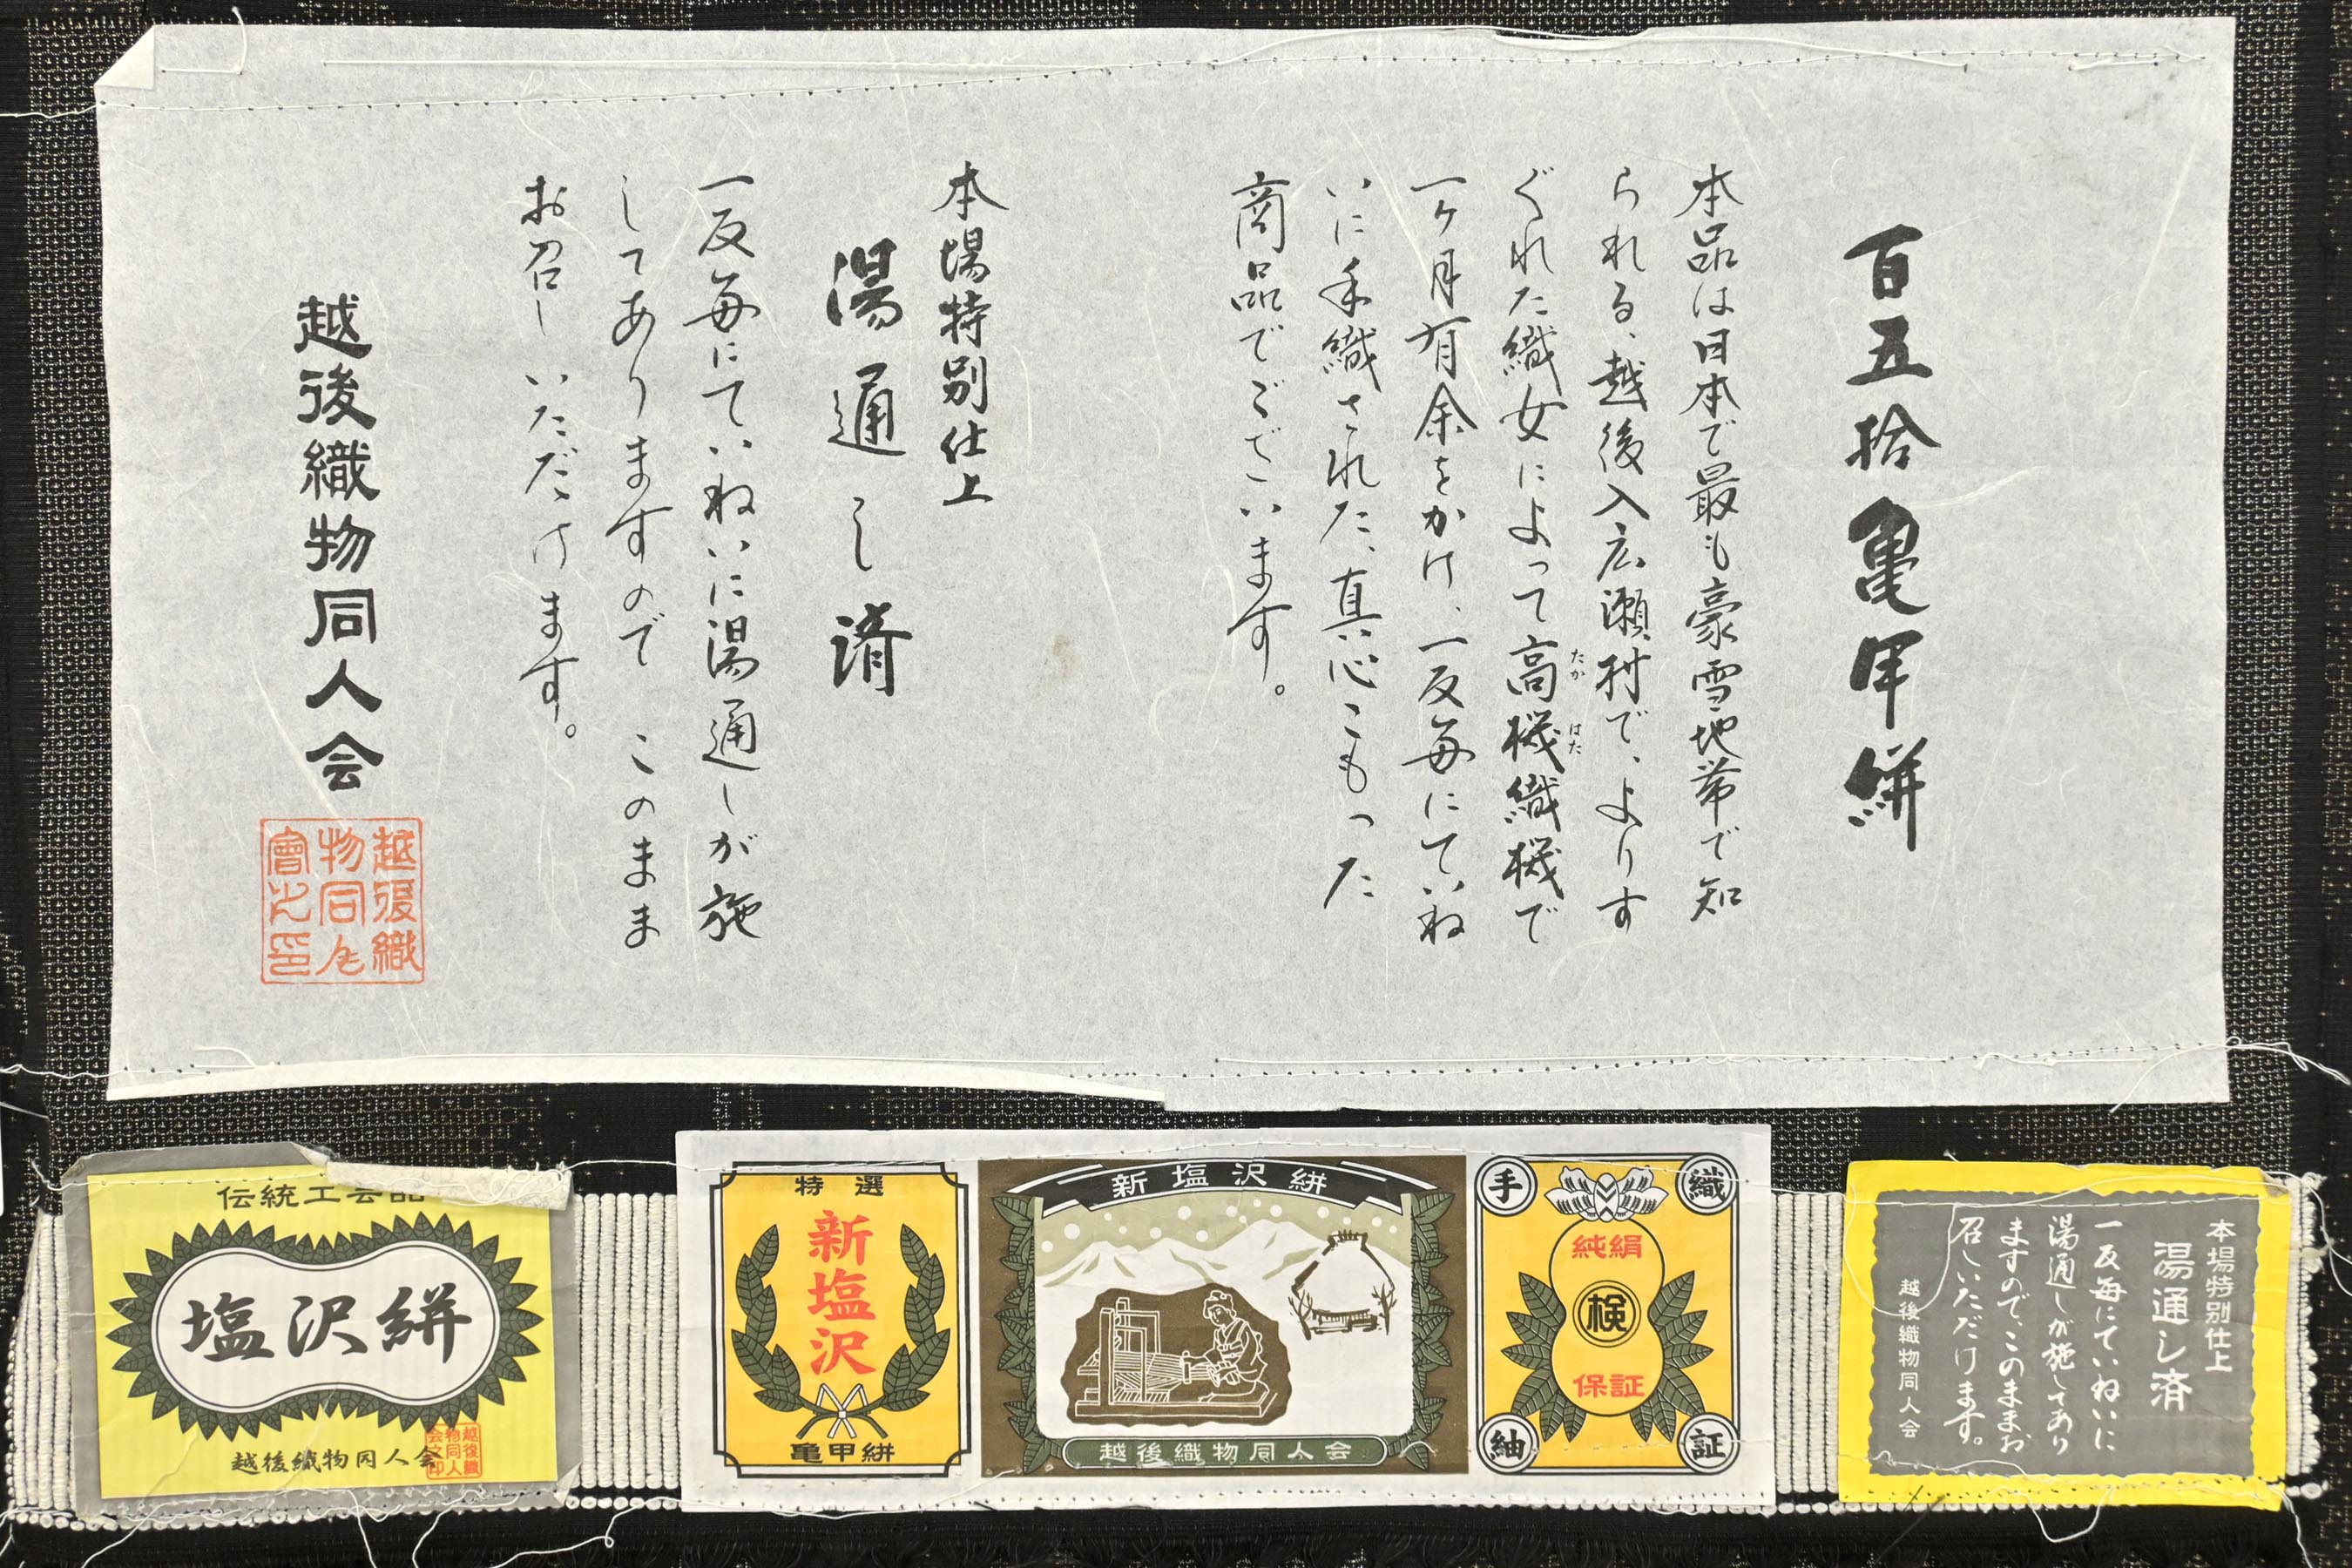 百五拾亀甲絣
本品は日本で最も豪雪地帯で知
られる、越後入広瀬村で、よりす
ぐれた織女によって高機織機で
たか
はた
一ヶ月有余をかけ、一反毎にていね
いに手織された、真心こもった
商品でございます。
本場特別仕上
湯通し済
一反毎にていねいに湯通しが施
してありますので このまま
お召しいただけます。
越後織物同人会
越後織
物同人
會之印
伝統工芸品
塩沢絣
越後織物同人会
越後織
物同人
会之印
特選
新塩沢
亀甲絣
新塩沢絣
越後織物同人会
手
織
純絹
検
保証
紬
証
本場特別仕上
湯通し済
一反毎にていねいに
湯通しが施してあり
ますので、このままお
召しいただけます。
越後織物同人会